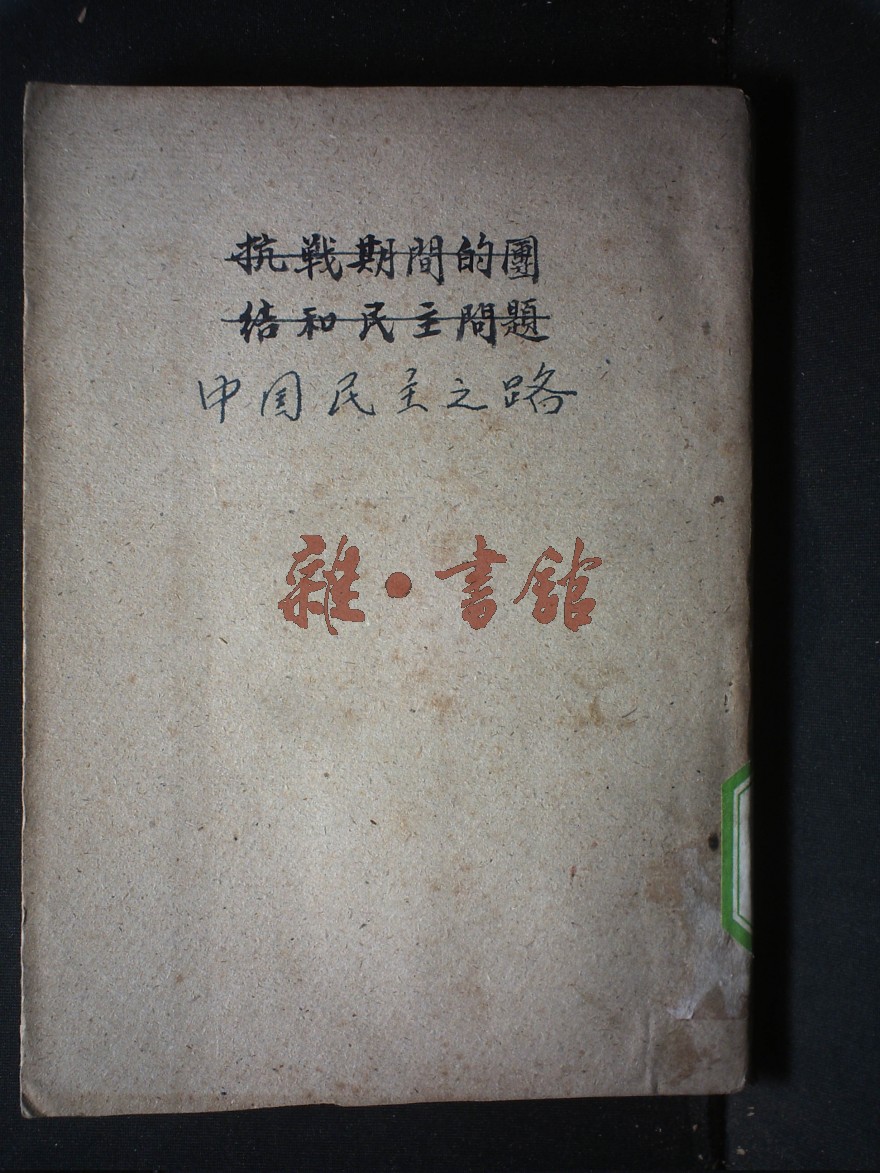 抗戰期間的團
结和民主問題
中国民主之路
雜·書館